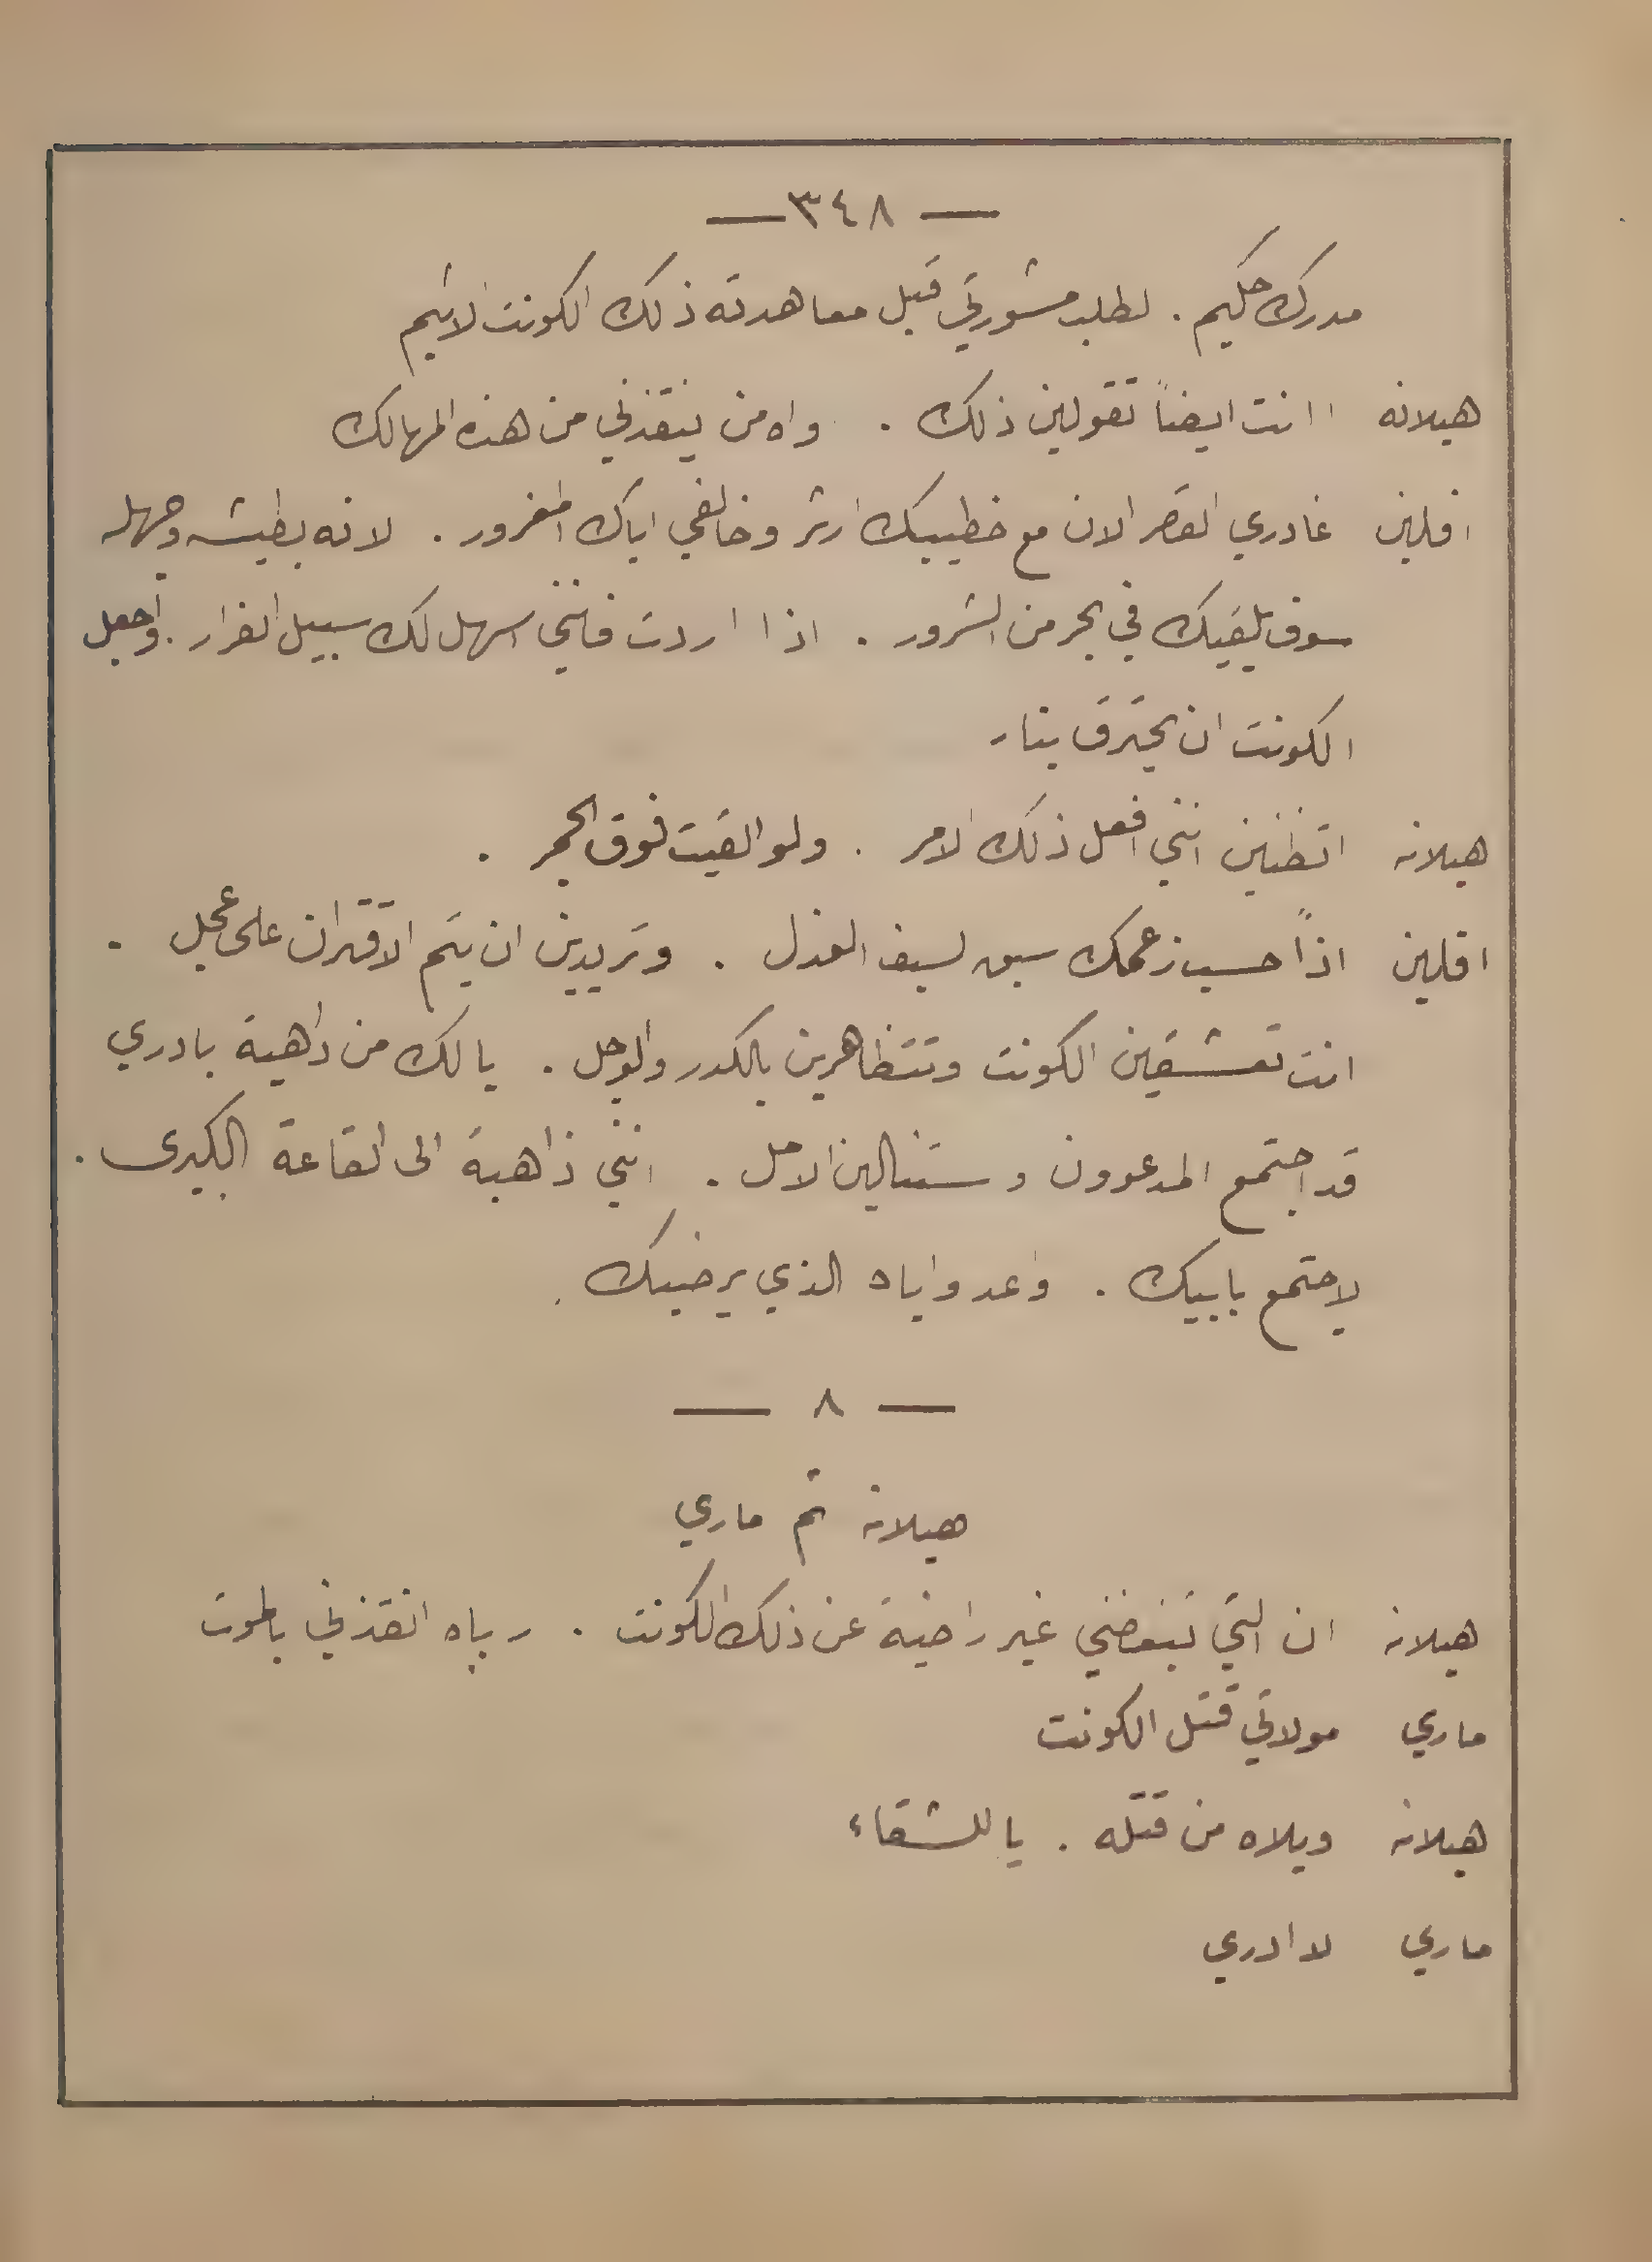 — ٣٤٨ —
مدرك حكيم . لطلب مشورتي قبل معاهدته ذلك الكونت الاثيم
هيلانه اانت ايضاً تقولين ذلك . واه من ينقذني من هذه المهالك
افلين غادري القصر الان مع خطيبك ارثر وخالفي اباك المغرور . لانه بطيشه وجهله
سوف يلقيك في بحر من الشرور . اذا اردت فانني اسهل لك سبيل الفرار . واجعل
الكونت ان يحترق بنار
هيلانه اتظنين انني افعل ذلك الامر . ولو القيت فوق الجمر .
افلين اذاً حسب زعمك سبق السيف العذل . وتريدين ان يتم الاقتران على عجل .
انت تعشقين الكونت وتتظاهرين بالكدر والوجل . يا لك من داهية بادري
قد اجتمع المدعوون وستنالين الامل . انني ذاهبة الى القاعة الكبرى .
لاجتمع بابيك . واعد واياه الذي يرضيك .
— ٨ —
هيلانه ثم ماري
هيلانه ان التي تبغضني غير راضية عن ذلك الكونت . رباه انقذني بالموت
ماري مولاتي قتل الكونت
هيلانه ويلاه من قتله . يا للشقاء
ماري لا ادري